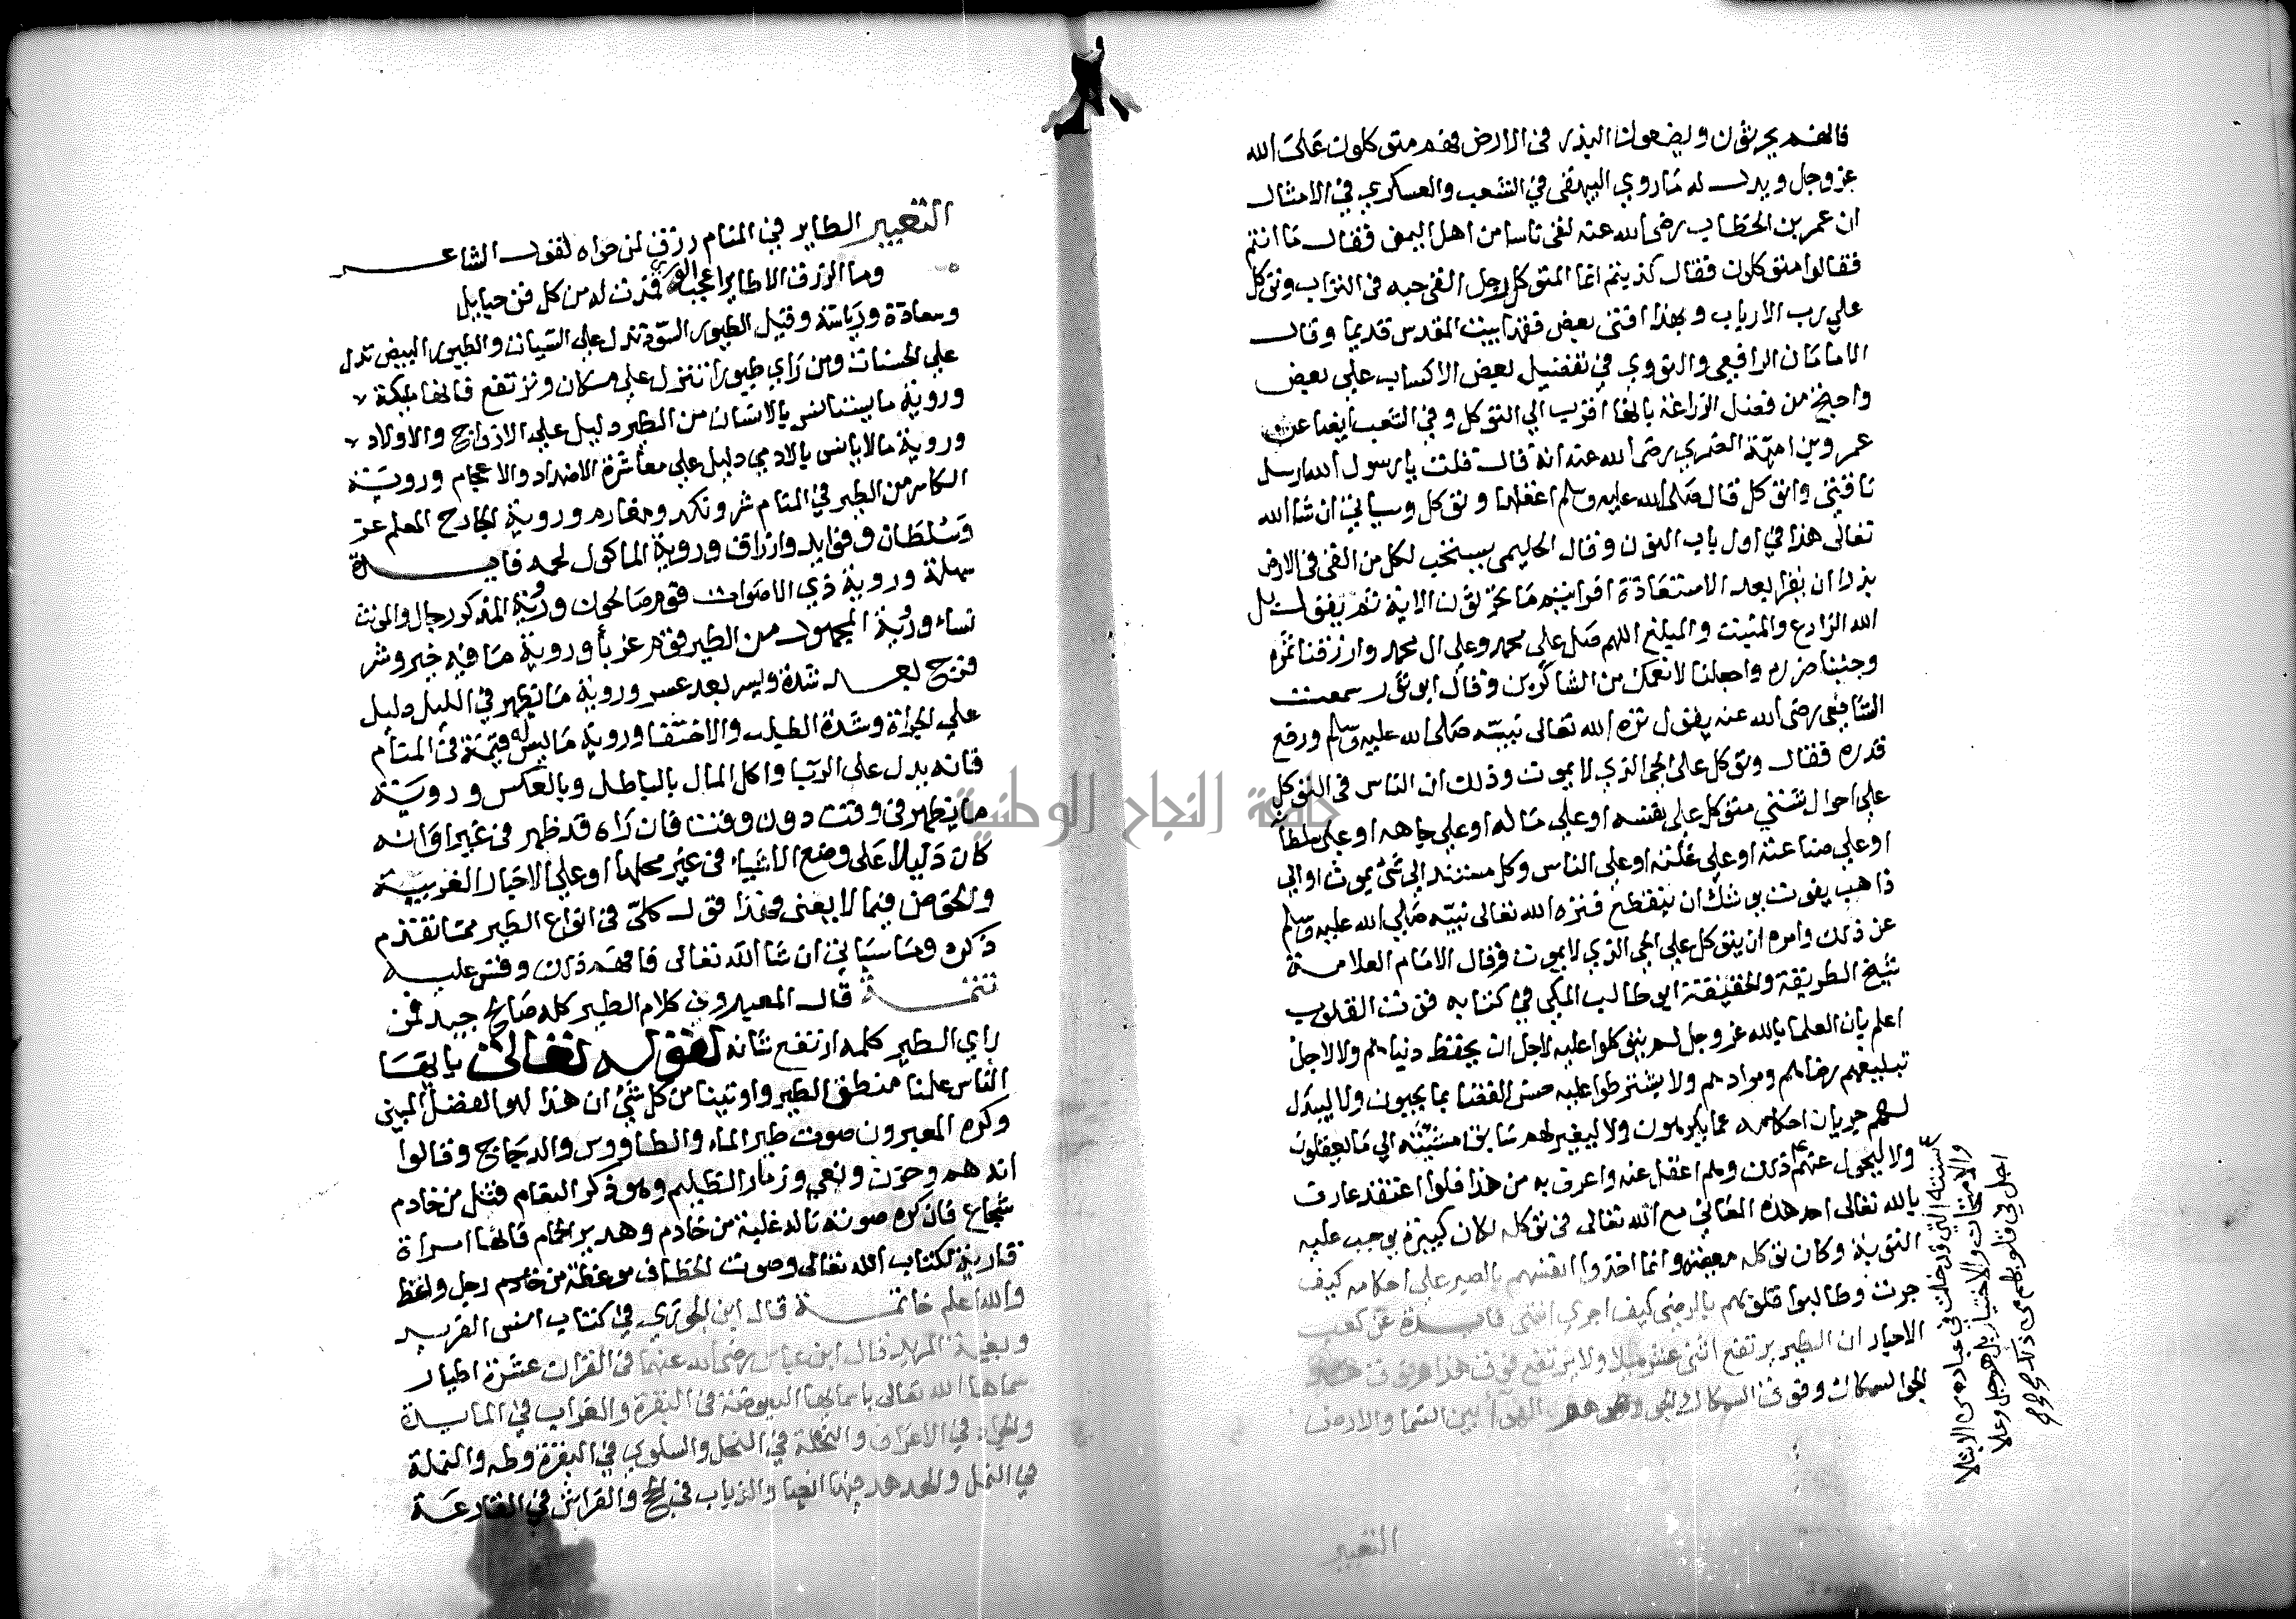 فانهم يحرثون ويضعون البذر في الارض فهم متوكلون على الله
عز وجل ويدل له ما روي البيهقي في الشعب والعسكري في الامثال
ان عمر بن الخطاب رضى الله عنه لقى ناسا من اهل اليمن فقال ما انتم
فقالوا متوكلون فقال كذبتم انما المتوكل رجل القى حبه في التراب وتوكل
علي رب الارباب وبهذا افتى بعض فقهاء بيت المقدس قديما وقال
الامامان الرافعي والنووي في تفضيل بعض الاكساب علي بعض
واحتج من فضل الزراعة بانها اقرب الي التوكل وفي الشعب ايضا عن
عمرو بن امية الضمري رضى الله عنه انه قال قلت يا رسول الله ارسل
ناقتي واتوكل قال صلى الله عليه وسلم اعقلها وتوكل وسياتي ان شا الله
تعالى هذا في اول باب النون وقال الحليمى يستحب لكل من القى في الارض
بذرا ان يقرا بعد الاستعاذة افرايتم ما تحرثون الاية ثم يقول بل
الله الزارع والمنبت والمبلغ اللهم صل على محمد وعلى ال محمد وارزقنا ثمره
وجنبنا ضرره واجعلنا لانعمك من الشاكرين وقال ابو ثور سمعت
الشافعى رضى الله عنه يقول نزه الله تعالى نبيه صلى الله عليه وسلم ورفع
قدره فقال وتوكل على الحي الذي لا يموت وذلك ان الناس في التوكل
علي احوال شتي متوكل على نفسه او علي ماله او علي جاهه او علي سلطا
او علي صناعته او علي غلته او علي الناس وكل مستند الي شئ يموت او الي
ذاهب يفوت يوشك ان ينقطع فنزه الله تعالى نبيه صلي الله عليه وسلم
عن ذلك وامره ان يتوكل علي الحي الذي لا يموت وقال الامام العلامة
شيخ الطريقة والحقيقة ابو طالب المكي في كتابه قوت القلوب
اعلم بان العلما بالله عز وجل لم يتوكلوا عليه لاجل ان يحفظ دنياهم ولا لاجل
تبليغهم رضاهم ومرادهم ولا يشترطوا عليه حسن القضا بما يحبون ولا ليبدل
لهم جريان احكامه عما يكرهون ولا ليغير لهم سابق مشيته الي ما يعقلون
ولا ليحول عنهم
سنته التي قد خلت في عباده من الابتلا
والامتحان والاختبار بل هو جل وعلا
اجل في قلوبهم من ذلك
ذلك وهم اعقل عنه واعرف به من هذا فلو اعتقد عارف
بالله تعالى احد هذه المعاني مع الله تعالى في توكله لكان كبيرة يوجب عليه
التوبة وكان توكله معصية وانما اخذوا انفسهم بالصبر على احكامه كيف
جرت وطالبوا قلوبهم بالرضى كيف اجري انتهى فايدة عن كعب
الاحبار ان الطير يرتفع اثنى عشر ميلا ولا يرتفع فوق هذا وفوق
الجو السكاك وفوق السكاك الجو وهو الهوآ بين السما والارض
التعبير
التعبير الطاير في المنام رزق لمن حواه لقول الشاعر
وما الرزق الا طاير اعجب الورى فمدت له من كل فن حبايل
وسعادة ورياسة وقيل الطيور السود تدل علي السيات والطيور البيض تدل
علي الحسنات ومن راي طيورا تنزل علي مكان وترتفع فانها ملئكة
وروية ما يستانس بالانسان من الطير دليل علي الازواج والاولاد
وروية ما لا يانس بالادمي دليل علي معاشرة الاضداد والاعجام وروية
الكاسر من الطير في المنام شر ونكد ومغارم وروية الجارح المعلم عز
وسلطان وفوايد وارزاق وروية الماكول لحمه فايدة
سهلة وروية ذي الاصوات قوم صالحون وروية المذكور رجال والمونث
نساء وروية المجهول من الطير قوم غربا وروية ما فيه خير وشر
فرج بعد شدة ويسر بعد عسر وروية ما يظهر في الليل دليل
علي الجراة وشدة الطلب والاختفا وروية ما ليس له قيمة في المنام
فانه يدل على الربا واكل المال بالباطل وبالعكس وروية
ما يظهر في وقت دون وقت فان راه قد ظهر في غير اوانه
كان دليلا على وضع الاشياء في غير محلها او علي الاخبار الغريبة
والخوض فيما لا يعنى وهذا قول كلي في انواع الطير مما تقدم
ذكره وما سياتي ان شا الله تعالى فافهم ذلك وقس عليه
تتمة قال المعبرون كلام الطير كله صالح جيد فمن
راي الطير كلمه ارتفع شانه لقوله تعالى يا ايها
الناس علمنا منطق الطير واوتينا من كل شئ ان هذا لهو الفضل المبين
وكره المعبرون صوت طير الماء والطاووس والدجاج وقالوا
انه هم وحزن ونعي وزمار الظليم وهو ذكر النعام قتل من خادم
شجاع فان كره صوته ناله غلبة من خادم وهدير الحمام فانها امراة
قارية لكتاب الله تعالى وصوت الخطاف موعظة من خادم رجل واعظ
والله اعلم خاتمة قال ابن الجوزي في كتاب انس الفريد
وبغية المريد قال ابن عباس رضى الله عنهما في القران عشرة اطيار
سماها الله تعالى باسمايها البعوضة في البقرة والغراب في المايدة
والجراد في الاعراف والنحلة في النحل والسلوي في البقرة وطه والنملة
في النمل والهدهد فيها ايضا والذباب في الحج والفراش في القارعة
جامعة النجاح الوطنية